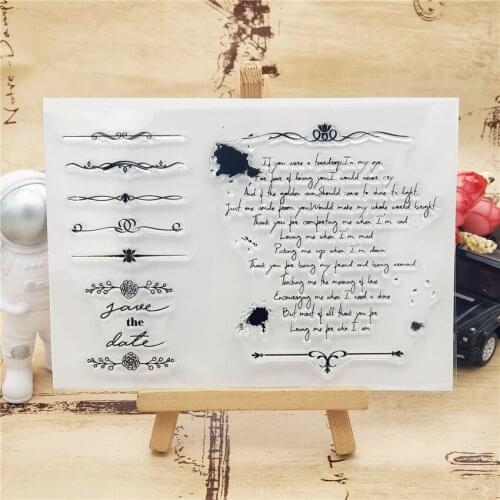 Notre-Dame
save
the
date
If you were a teardrop In my eye,
For fear of losing you, I would never cry
And if the golden sun, Should cease to shine its light,
Just one smile from you, Would make my whole world bright
Thank you for comforting me when I'm sad
Loving me when I'm mad
Picking me up when I'm down
Thank you for being my friend and being around
Teaching me the meaning of love
Encouraging me when I need a shove
But most of all thank you for
Loving me for who I am